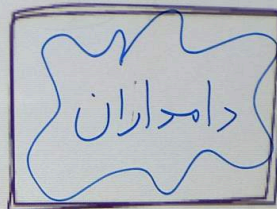 دامداران